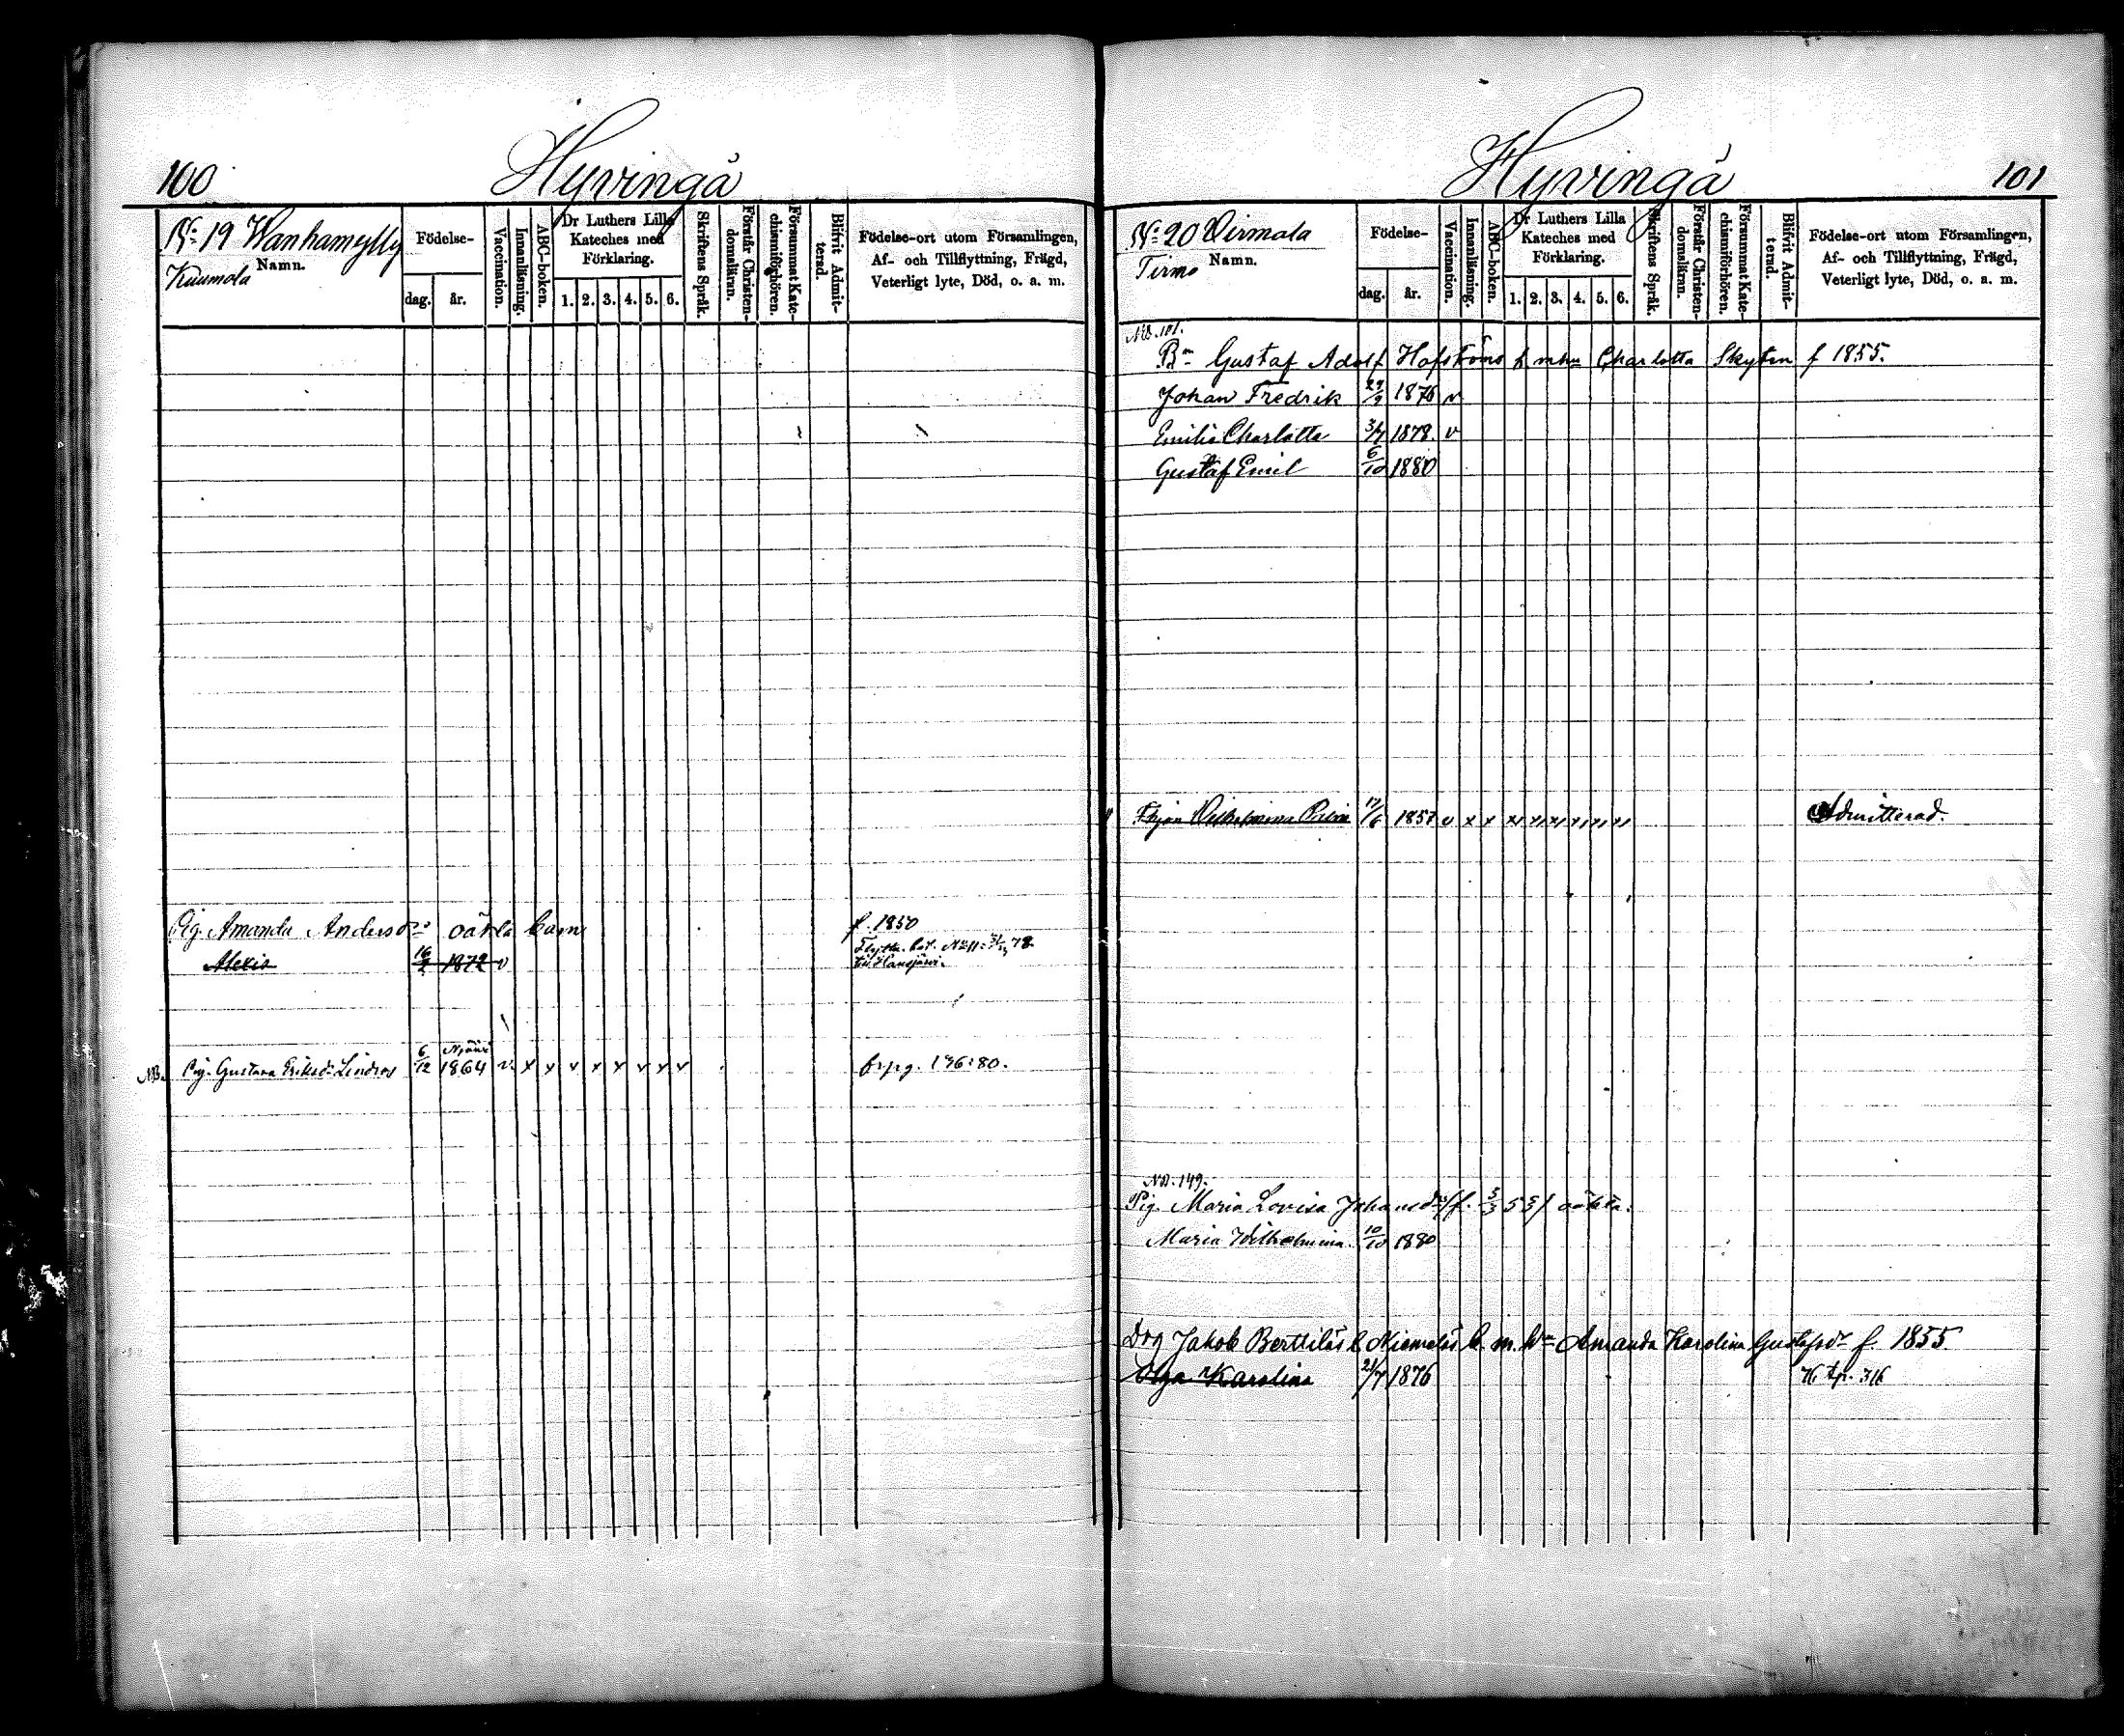 100
Hyvingå
N:o 19 Wanhamylly
Kuumola
Namn.
Födelse-
dag.
år.
Vaccination.
Innanläsning.
ABC-boken.
Dr Luthers Lilla
Kateches med
Förklaring.
1. 2. 3. 4. 5. 6.
Skriftens Språk.
Förstår Christen-
domsläran.
Försummat Kate-
chismiförhören.
Blifvit Admit-
terad.
Födelse-ort utom Församlingen,
Af- och Tillflyttning, Frägd,
Veterligt lyte, Död, o. a. m.
Pig. Amanda Andersd:s oäkta barn f. 1850
Alexis 16/2 1872 v
till Hausjärvi.
NB. Pig. Gustava Eriksd:r Lindros 6/12 1864 v x x v x x v x v
136:80.
Hyvingå
101
N:o 20 Virmala
Tirmo
Namn.
Födelse-
dag.
år.
Vaccination.
Innanläsning.
ABC-boken.
Dr Luthers Lilla
Kateches med
Förklaring.
1. 2. 3. 4. 5. 6.
Skriftens Språk.
Förstår Christen-
domsläran.
Försummat Kate-
chismiförhören.
Blifvit Admit-
terad.
Födelse-ort utom Församlingen,
Af- och Tillflyttning, Frägd,
Veterligt lyte, Död, o. a. m.
NB. 101.
Bn Gustaf Adolf Hofströms b. m hu Charlotta Skyten f 1855.
Johan Fredrik 29/9 1876 v
Emilia Charlotta 3/7 1878. v
Gustaf Emil 6/10 1880
Vilhelmina 17/6 1857 v x x Admitterad.
NB. 149.
Pig. Maria Lovisa Johansd:s /f. 3/3 55/ oäkta:
Maria Wilhelmina 10/10 1880
Drg Jakob Berttilås l. Niemelås b. m. hn Amanda Karolina Gustafsdr f. 1855.
Olga Karolina 21/7 1876 316